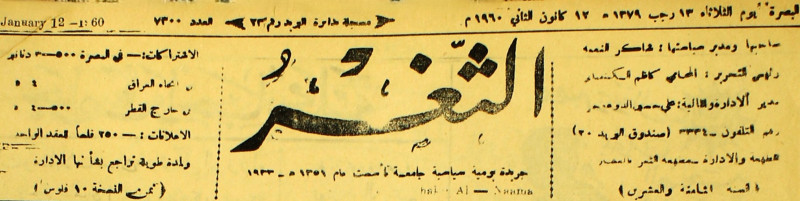 البصرة يوم الثلاثاء ١٣ رجب ١٣٧٩ ه ١٢ كانون الثاني ١٩٦٠ م
مسجلة دائرة البريد رقم ٢٣
العدد ٧٣٠٠
January 12 -1: 60
صاحبها ومدير سياستها : شاكر النعمة
رئيس التحرير : المحامي كاظم
مدير الادارة والمالية : علي
رقم التلفون - ٣٣٣٤ (صندوق البريد ٢٠)
المطبعة والادارة -
( السنة الثامنة والعشرين )
الثغر
جريدة يومية سياسية جامعة تأسست عام ١٣٥١ ه - ١٩٣٣
Al — Naama
الاشتراكات :— في البصرة ٥٠٠-٣ دنانير
انحاء العراق ٤
خارج القطر ٥٠٠-٤
الاعلانات :— ٢٥٠ فلساً للعقد الواحد
ولمدة طويلة تراجع بشأنها الادارة
( ثمن النسخة ١٠ فلوس )